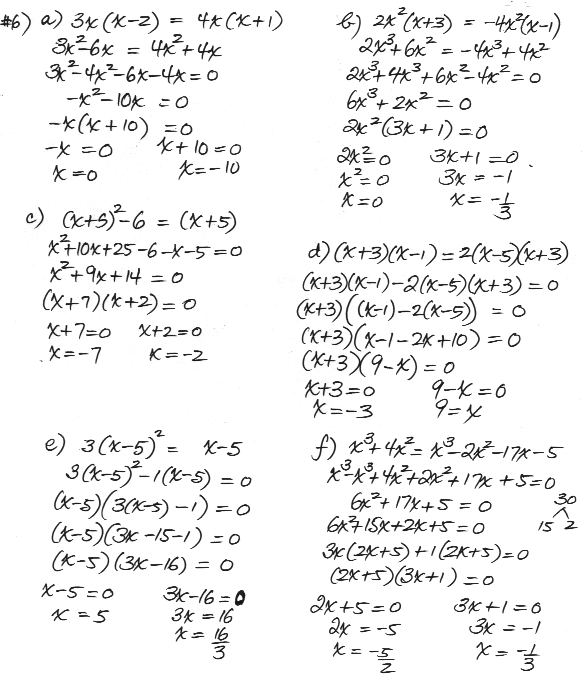 #6) a) 3x(x-2) = 4x(x+1)
3x²-6x = 4x²+4x
3x²-4x²-6x-4x=0
-x²-10x = 0
-x(x+10) = 0
-x=0 x+10=0
x=0 x=-10
b) 2x²(x+3) = -4x²(x-1)
2x³+6x² = -4x³+4x²
2x³+4x³+6x²-4x²=0
6x³+2x² = 0
2x²(3x+1) = 0
2x²=0 3x+1=0
x²=0 3x=-1
x=0 x=-1/3
c) (x+5)²-6 = (x+5)
x²+10x+25-6-x-5=0
x²+9x+14 = 0
(x+7)(x+2)=0
x+7=0 x+2=0
x=-7 x=-2
d) (x+3)(x-1)=2(x-5)(x+3)
(x+3)(x-1)-2(x-5)(x+3)=0
(x+3)((x-1)-2(x-5)) = 0
(x+3)(x-1-2x+10)=0
(x+3)(9-x)=0
x+3=0 9-x=0
x=-3 9=x
e) 3(x-5)² = x-5
3(x-5)²-1(x-5) = 0
(x-5)(3(x-5)-1)=0
(x-5)(3x-15-1)=0
(x-5)(3x-16)=0
x-5=0 3x-16=0
x=5 3x=16
x=16/3
f) x³+4x²=x³-2x²-17x-5
x³-x³+4x²+2x²+17x+5=0
6x²+17x+5=0 30
6x²+15x+2x+5=0 15 2
3x(2x+5)+1(2x+5)=0
(2x+5)(3x+1)=0
2x+5=0 3x+1=0
2x=-5 3x=-1
x=-5/2 x=-1/3